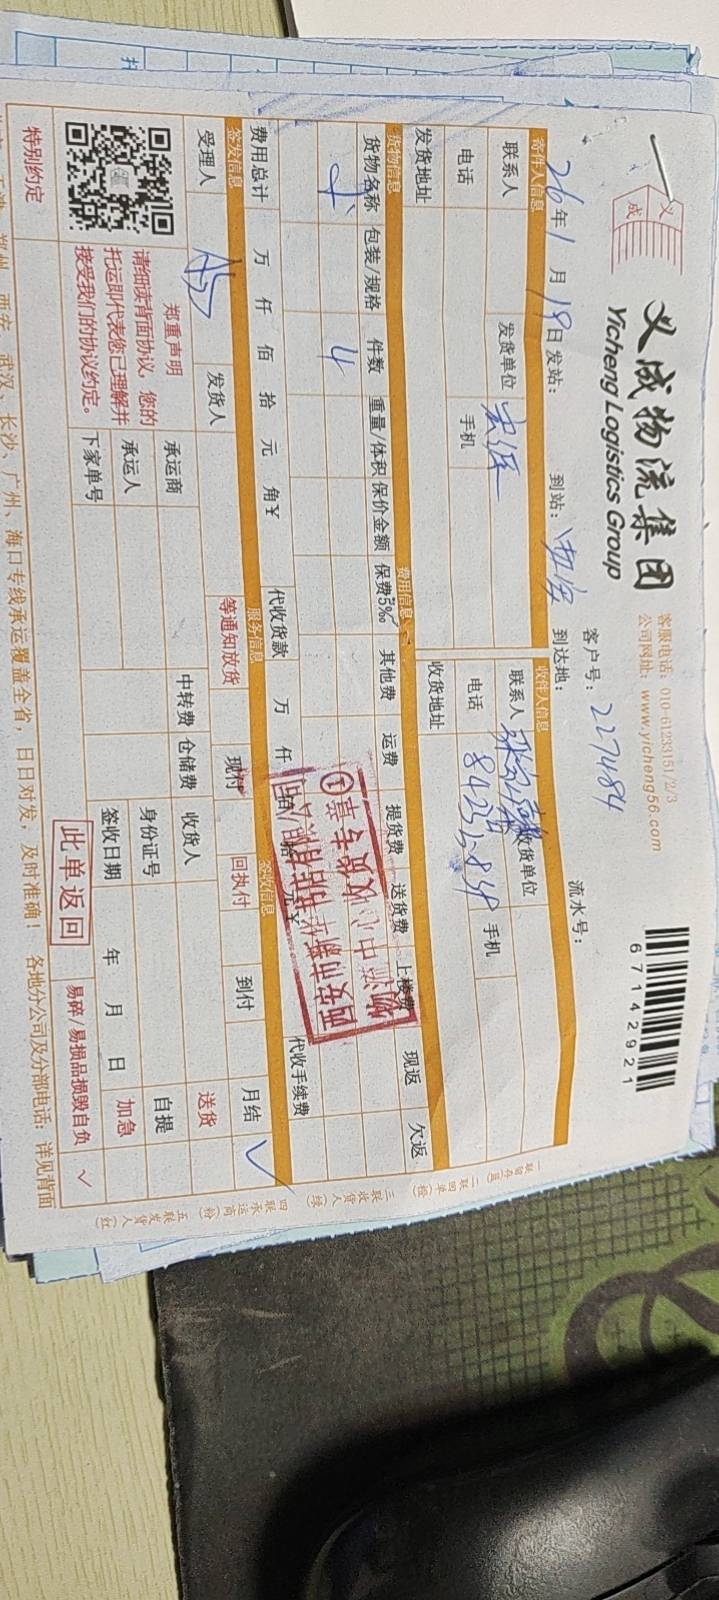 义成
义成物流集团
Yicheng Logistics Group
客服电话：010-61233151/2/3
公司网址：www.yicheng56.com
67142921
客户号：227484
流水号：
26年1月19日 发站： 到站：西安 到达地：
寄件人信息 收件人信息
联系人 发货单位 联系人 收货单位
电话 手机 电话 84252838 手机
发货地址 收货地址
货物信息 费用信息
货物名称 包装/规格 件数 重量/体积 保价金额 保费5‰ 其他费 运费 提货费 送货费 上楼费 现返 欠返
4
费用总计 万 仟 佰 拾 元 角¥ 代收货款 万 仟 佰 拾 元¥ 代收手续费
西安市新华
物流中心收货专
①
签发信息 服务信息 签收信息
受理人 发货人 等通知放货 现付 回执付 到付 月结 ✓
承运商 中转费 仓储费 收货人 送货
郑重声明
请细读背面协议，您的
托运即代表您已理解并
接受我们的协议约定。
承运人 身份证号 自提
下家单号 签收日期 年 月 日 加急
特别约定 此单返回 易碎/易损品损毁自负 ✓
郑州、西安、武汉、长沙、广州、海口专线承运覆盖全省，日日对发，及时准确！ 各地分公司及分部电话：详见背面
一联留存(黑) 二联回单(橙) 三联收货人(绿) 四联承运商(粉) 五联发货人(红)